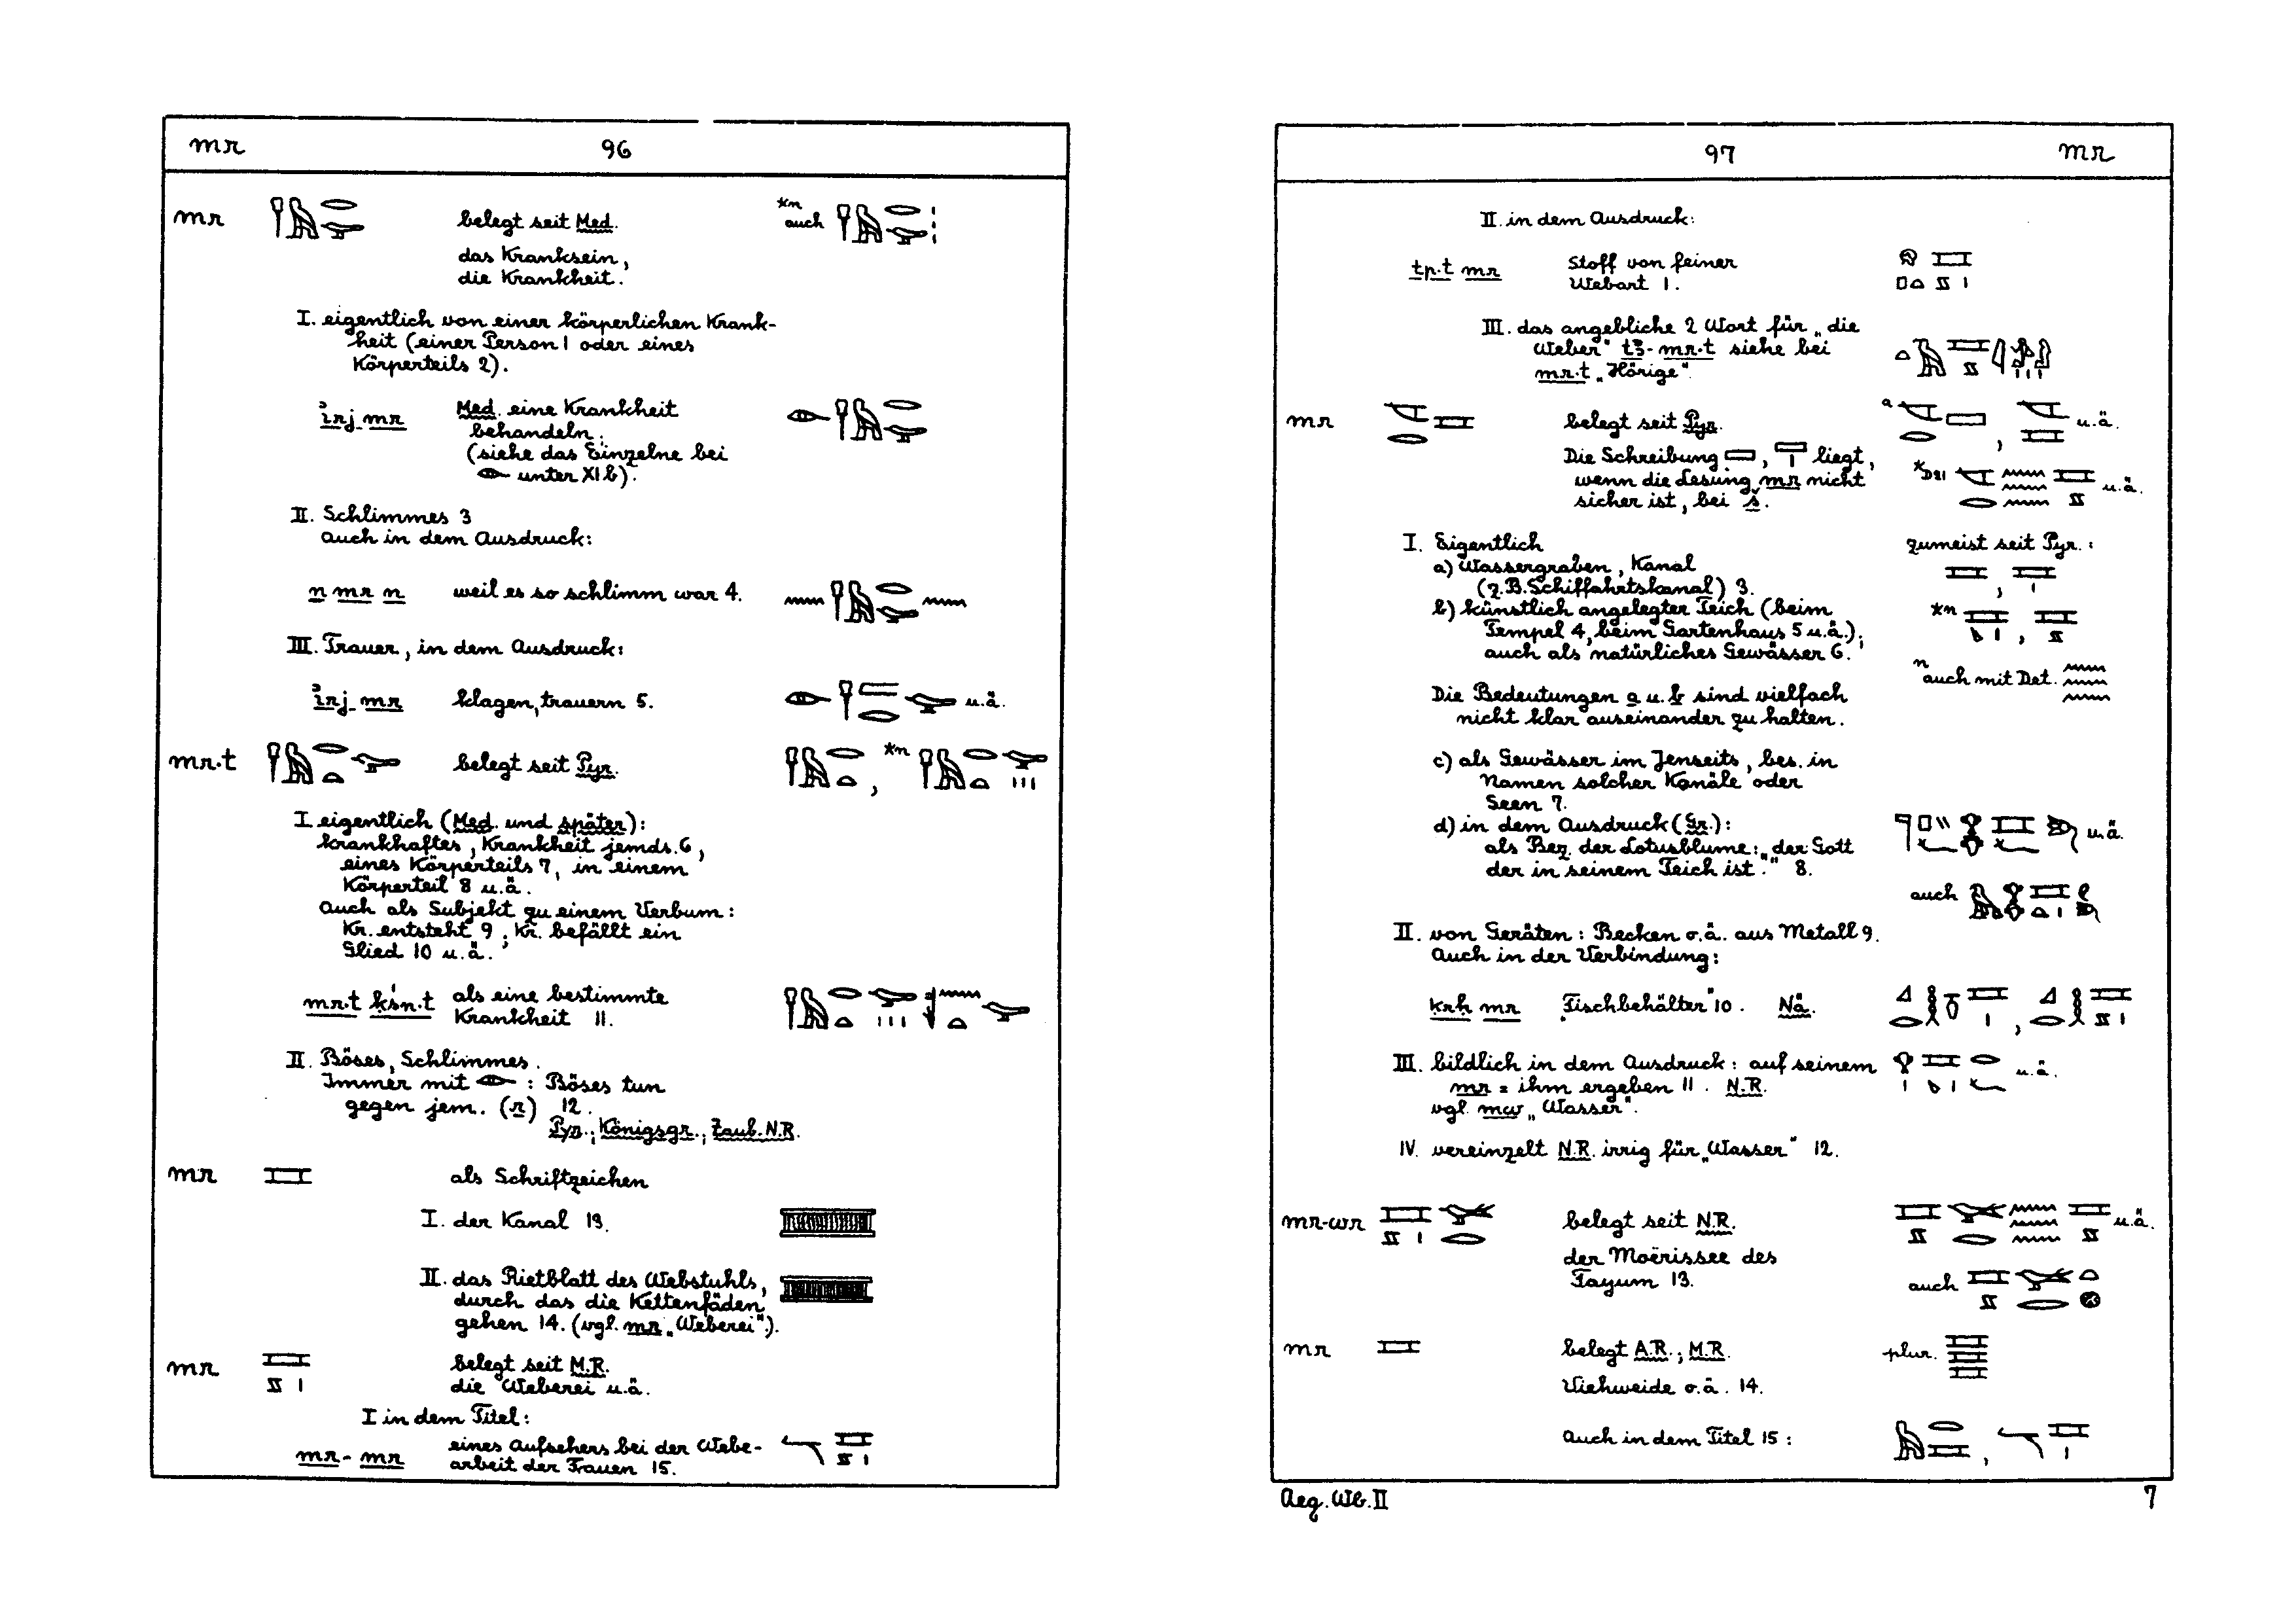 mr 96
mr belegt seit Med. *n auch
das Kranksein,
die Krankheit.
I. eigentlich von einer körperlichen Krank-
heit (einer Person 1 oder eines
Körperteils 2).
ỉrj mr Med. eine Krankheit
behandeln.
(siehe das Einzelne bei
unter XI b).
II. Schlimmes 3
auch in dem Ausdruck:
n mr n weil es so schlimm war 4.
III. Trauer, in dem Ausdruck:
ỉrj mr klagen, trauern 5. u.ä.
mr.t belegt seit Pyr. , *n
I eigentlich (Med. und später):
krankhaftes, Krankheit jemds. 6,
eines Körperteils 7, in einem
Körperteil 8 u.ä.
Auch als Subjekt zu einem Verbum:
Kr. entsteht 9; Kr. befällt ein
Glied 10 u.ä.
mr.t ḳśn.t als eine bestimmte
Krankheit 11.
II. Böses, Schlimmes.
Immer mit : Böses tun
gegen jem. (r) 12.
Pyr.; Königsgr.; Zaub. N.R.
mr als Schriftzeichen
I. der Kanal 13.
II. das Rietblatt des Webstuhls,
durch das die Kettenfäden
gehen 14. (vgl. mr „Weberei").
mr belegt seit M.R.
die Weberei u.ä.
I in dem Titel:
mr-mr eines Aufsehers bei der Webe-
arbeit der Frauen 15.
97 mr
II. in dem Ausdruck:
tp.t mr Stoff von feiner
Webart 1.
III. das angebliche 2 Wort für „die
Weber" tꜣ-mr.t siehe bei
mr.t „Hörige".
mr belegt seit Pyr. a , u.ä.
Die Schreibung , liegt,
wenn die Lesung mr nicht
sicher ist, bei š. *D21 u.ä.
I. Eigentlich zumeist seit Pyr.:
a) Wassergraben, Kanal
(z.B. Schiffahrtskanal) 3. ,
b) künstlich angelegter Teich (beim *n ,
Tempel 4, beim Gartenhaus 5 u.ä.);
auch als natürliches Gewässer 6.
n auch mit Det.
Die Bedeutungen a u. b sind vielfach
nicht klar auseinander zu halten.
c) als Gewässer im Jenseits, bes. in
Namen solcher Kanäle oder
Seen 7.
d) in dem Ausdruck (Gr.): u.ä.
als Bez. der Lotusblume: „der Gott
der in seinem Teich ist." 8.
auch
II. von Geräten: Becken o.ä. aus Metall 9.
Auch in der Verbindung:
ḳrḥ mr „Fischbehälter" 10. Nä. ,
III. bildlich in dem Ausdruck: auf seinem
mr = ihm ergeben 11. N.R. u.ä.
vgl. mw „Wasser".
IV. vereinzelt N.R. irrig für „Wasser" 12.
mr-wr belegt seit N.R. u.ä.
der Moërissee des
Fayum 13. auch
mr belegt A.R.; M.R. plur.
Viehweide o.ä. 14.
Auch in dem Titel 15: ,
Aeg. Wb. II 7